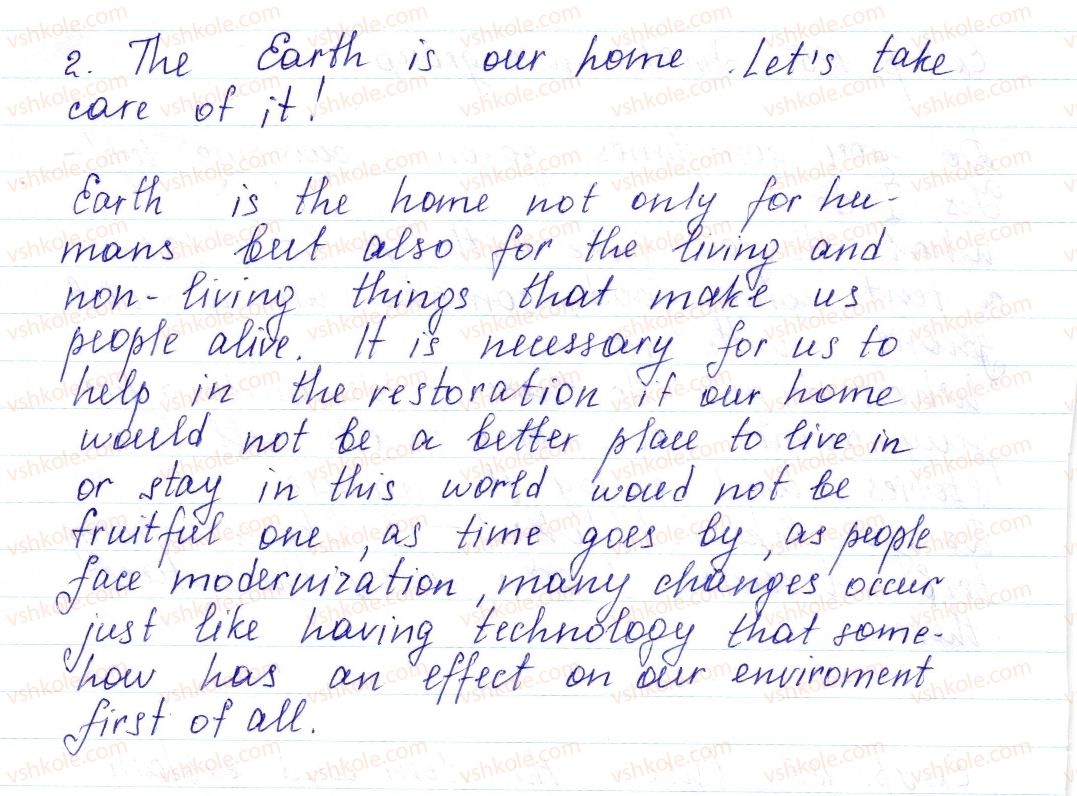 2. The Earth is our home. Let's take
care of it!
Earth is the home not only for hu-
mans but also for the living and
non-living things that make us
people alive. It is necessary for us to
help in the restoration if our home
would not be a better place to live in
or stay in this world woud not be
fruitful one, as time goes by, as people
face modernization, many changes occur
just like having technology that some-
how has an effect on our enviroment
first of all.
vshkole.com